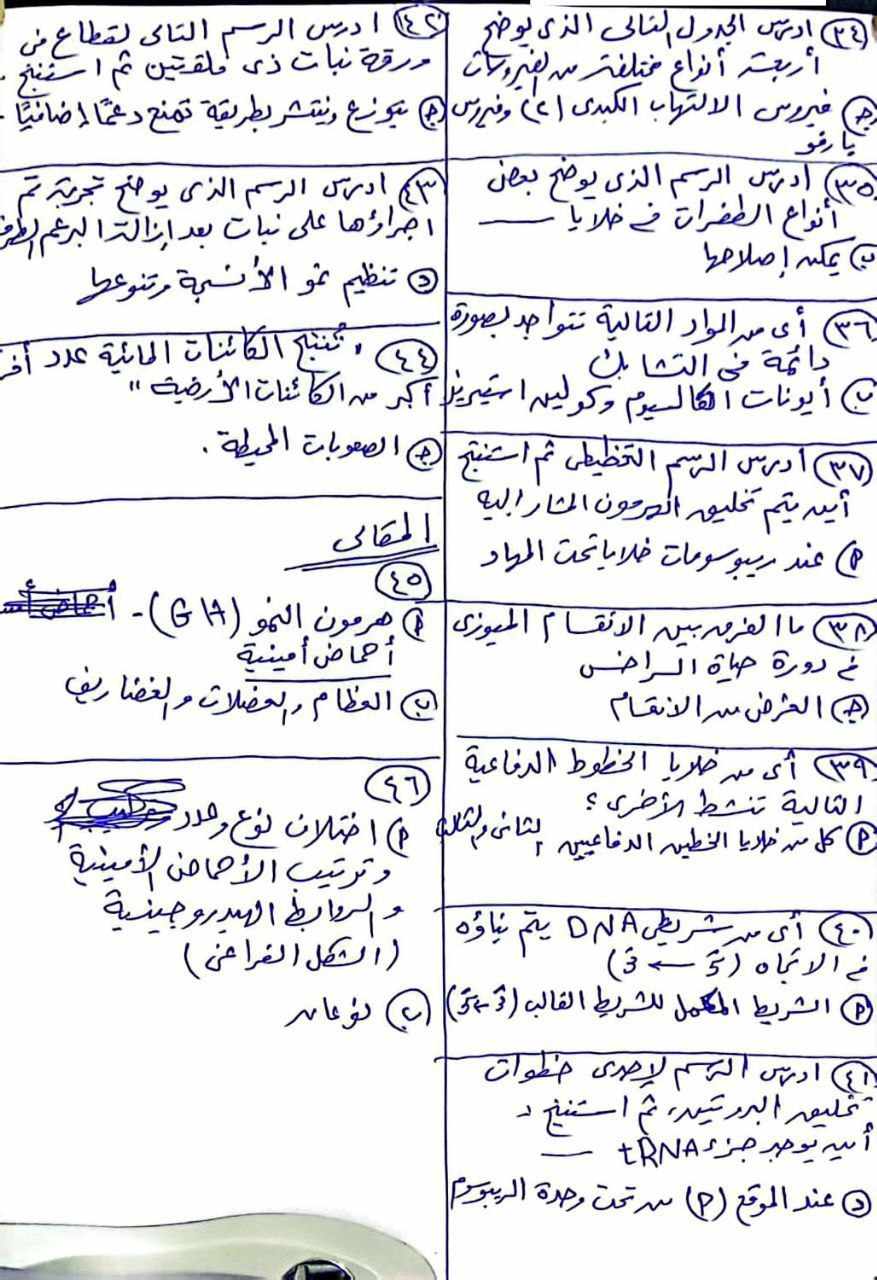 ٣٤ ادرس الجدول التالى الذى يوضح
أربعة أنواع مختلفة من الفيروسات
ج فيروس الالتهاب الكبدى (C) وفيروس
بارفو
٣٥ ادرس الرسم الذى يوضح بعض
أنواع الطفرات فى خلايا ــــــ
ب يمكن إصلاحها
٣٦ أى من المواد التالية تتواجد بصورة
دائمة فى التشابك
ب أيونات الكالسيوم وكولين استيريز
٣٧ ادرس الرسم التخطيطى ثم استنتج
أين يتم تخليق الهرمون المشار اليه
P عند ريبوسومات خلايا تحت المهاد
٣٨ ما الفرق بين الانقسام الميوزى
فى دورة حياة السراخس
ج الغرض من الانقسام
٣٩ أى من خلايا الخطوط الدفاعية
التالية تنشط الأخرى ؟
P كل من خلايا الخطين الدفاعيين الثانى والثالث
٤٠ أى من شريطى DNA يتم بناؤه
فى الاتجاه (3 ← 5)
P الشريط المكمل للشريط القالب (3 ← 5)
٤١ ادرس الرسم لإحدى خطوات
تخليق البروتين، ثم استنتج د
أين يوجد جزء tRNA ــــ
د عند الموقع (P) من تحت وحدة الريبوسوم
٤٢ ادرس الرسم التالى لقطاع فى
ورقة نبات ذى فلقتين ثم استنتج
ج يتوزع وينتشر بطريقة تمنح دعمًا إضافيًا
٤٣ ادرس الرسم الذى يوضح تجربة تم
اجراؤها على نبات بعد إزالة البرعم الطرفى
د تنظيم نمو الأنسجة وتنوعها
٤٤ تُنتج الكائنات المائية عدد
أكبر من الكائنات الأرضية "
ج الصعوبات المحيطة .
المقالى
٤٥
P هرمون النمو (GH) -
أحماض أمينية
ب العظام والعضلات والغضاريف
٤٦
P اختلاف نوع وعدد
وترتيب الأحماض الأمينية
والروابط الهيدروجينية
(الشكل الفراغى)
ب نوعان